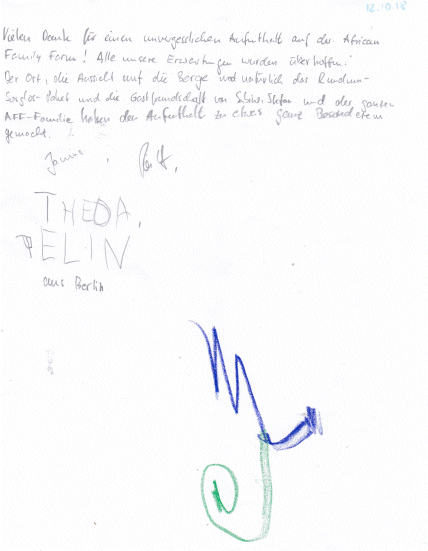 12.10.18
Vielen Dank für einen unvergesslichen Aufenthalt auf der African
Family Farm! Alle unsere Erwartungen wurden übertroffen.
Der Ort, die Aussicht auf die Berge und natürlich das Rundum-
Sorglos-Paket und die Gastfreundschaft von Stefan und der ganzen
AFF-Familie haben den Aufenthalt zu etwas ganz Besonderem
gemacht.
THEDA,
ELIN
aus Berlin